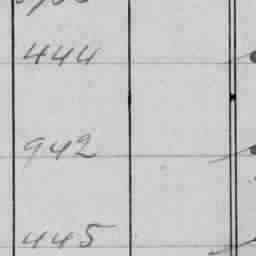 444
942
445